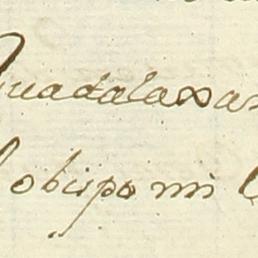 Guadalaxar
obispo mi